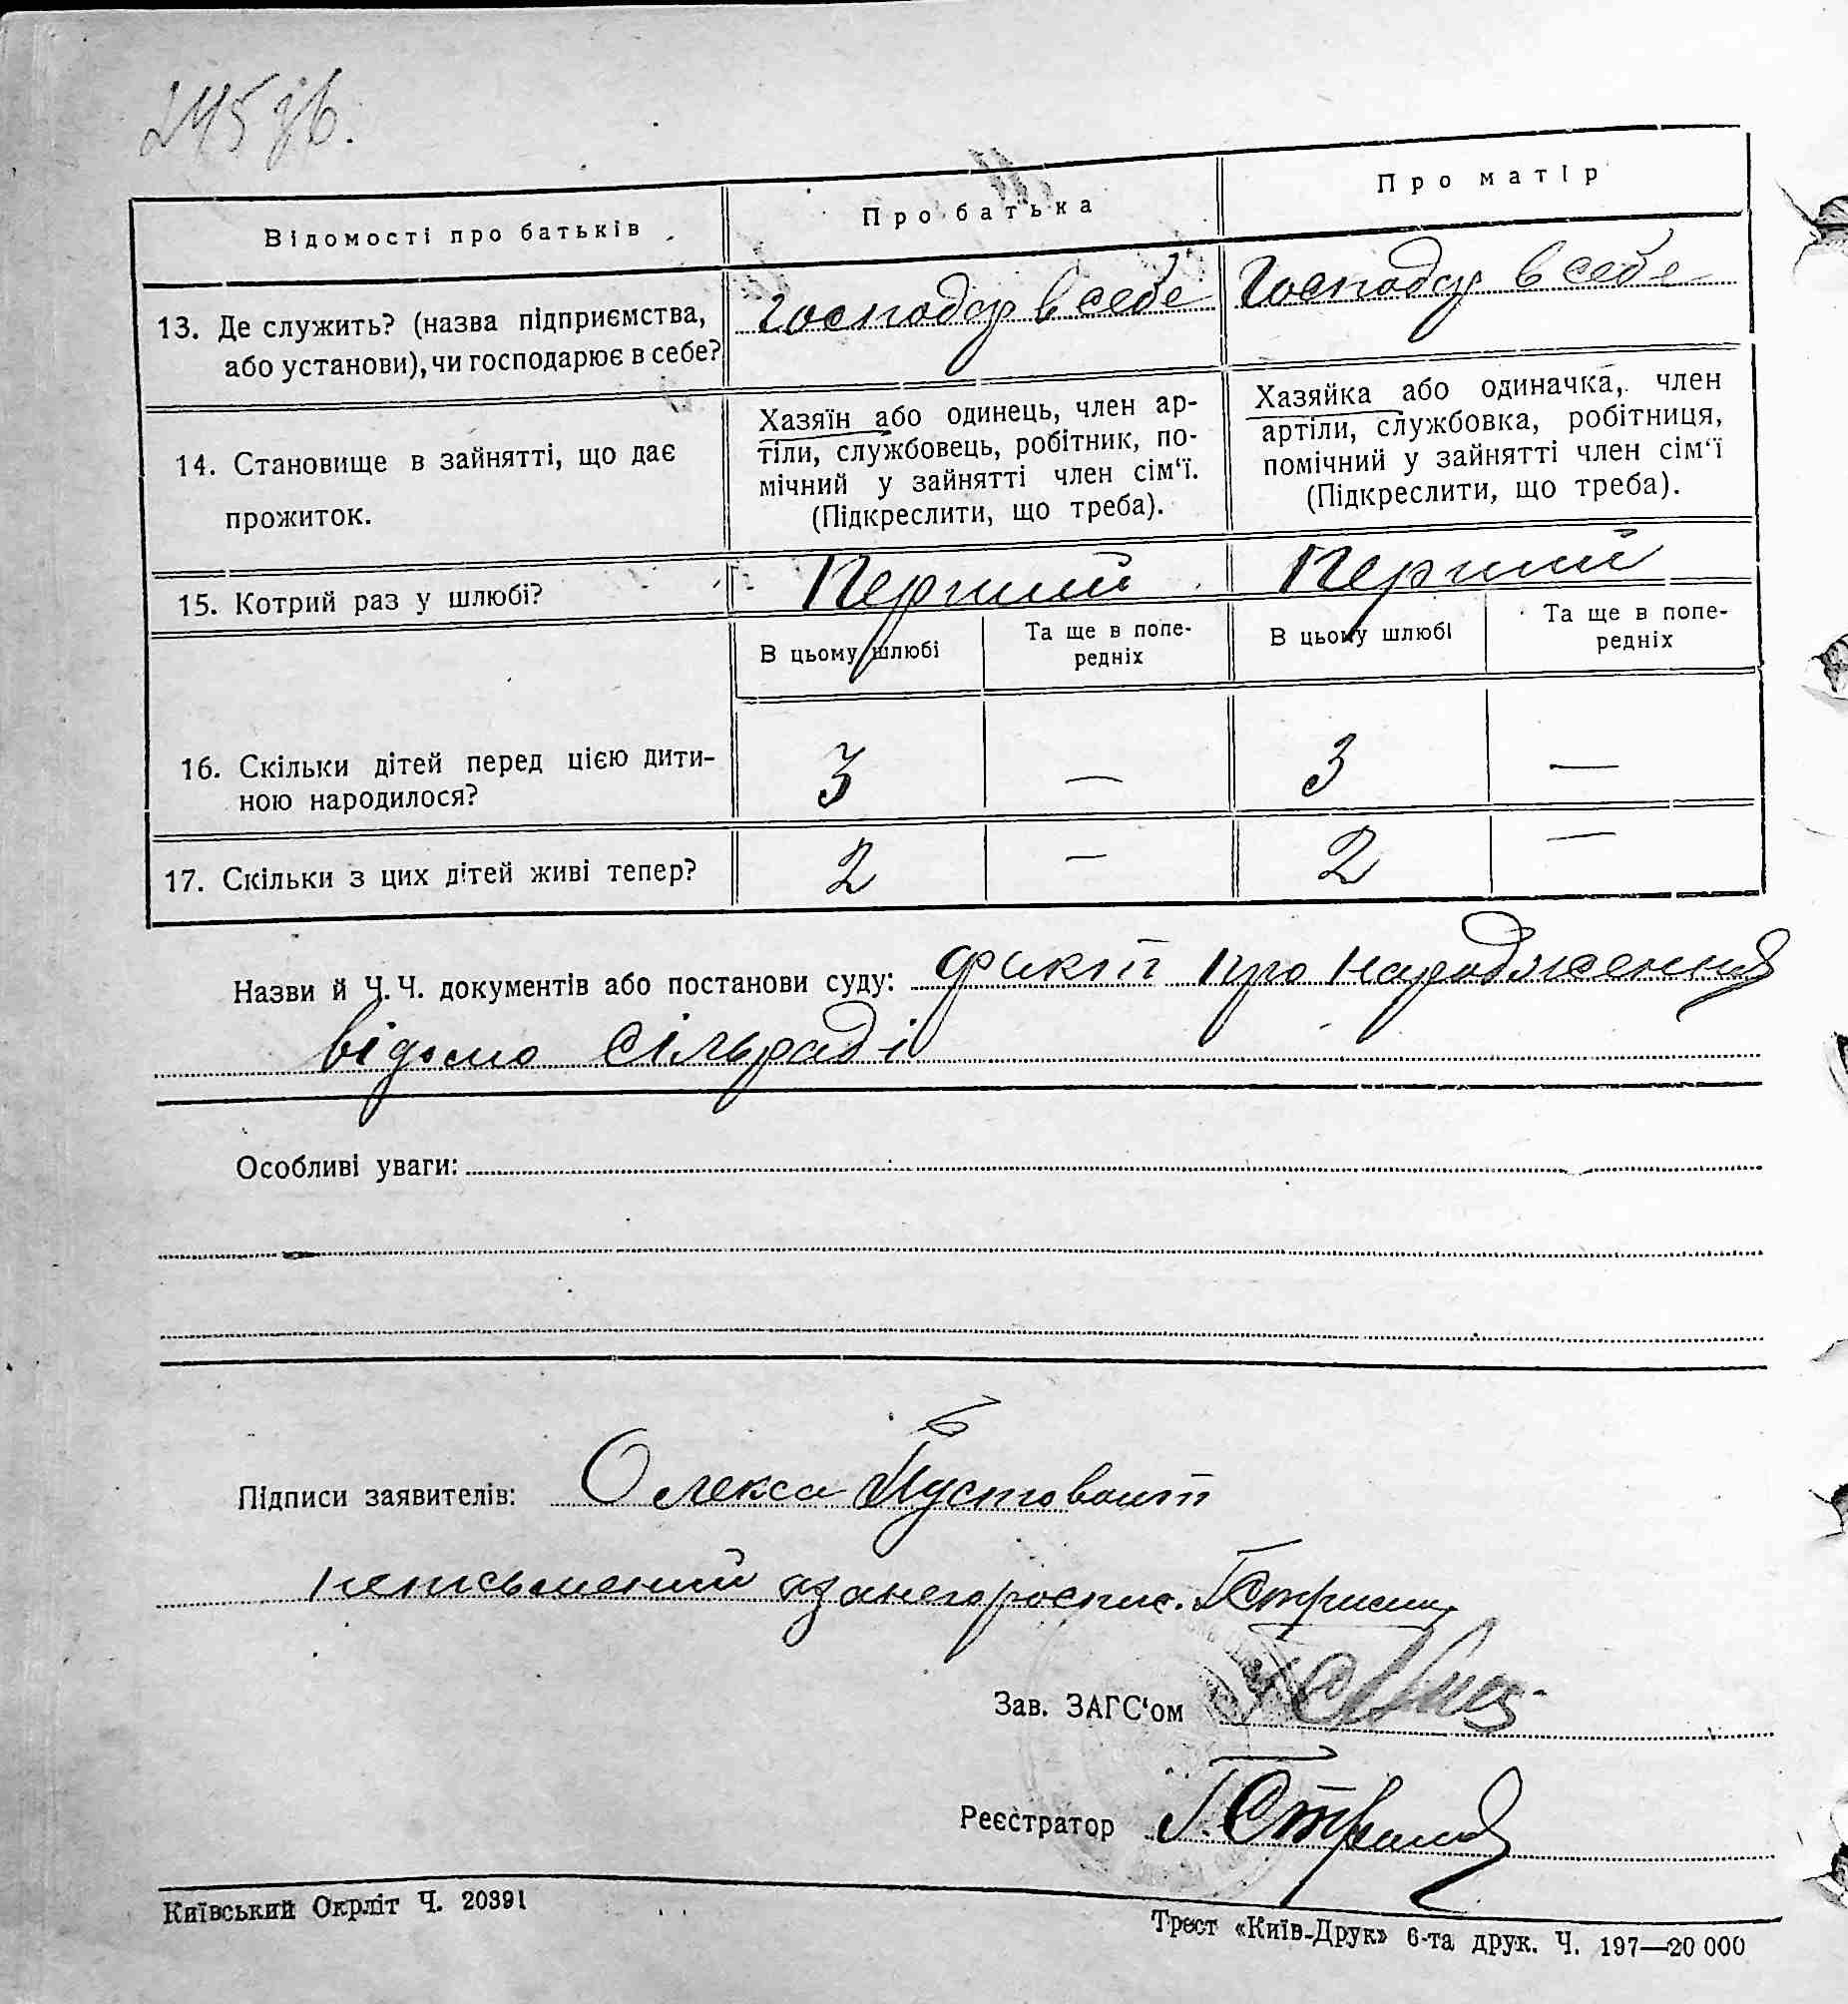 245 зв.
Відомості про батьків
Про батька
Про матір
13. Де служить? (назва підприємства,
або установи), чи господарює в себе?
Господар в себе
Господар в себе
14. Становище в зайнятті, що дає
прожиток.
Хазяїн або одинець, член ар-
тіли, службовець, робітник, по-
мічний у зайнятті член сім'ї.
(Підкреслити, що треба).
Хазяйка або одиначка, член
артіли, службовка, робітниця,
помічний у зайнятті член сім'ї
(Підкреслити, що треба).
15. Котрий раз у шлюбі?
Перший
Перший
В цьому шлюбі
Та ще в попе-
редніх
В цьому шлюбі
Та ще в попе-
редніх
16. Скільки дітей перед цією дити-
ною народилося?
3 — 3 —
17. Скільки з цих дітей живі тепер?
2 — 2 —
Назви й Ч.Ч. документів або постанови суду: факт про народження
відомо сільраді
Особливі уваги:
Підписи заявителів: Олекса Пустовоит
неписьменний
Зав. ЗАГС'ом
Реєстратор
Київський Окрліт Ч. 20391
Трест «Київ-Друк» 6-та друк. Ч. 197—20 000